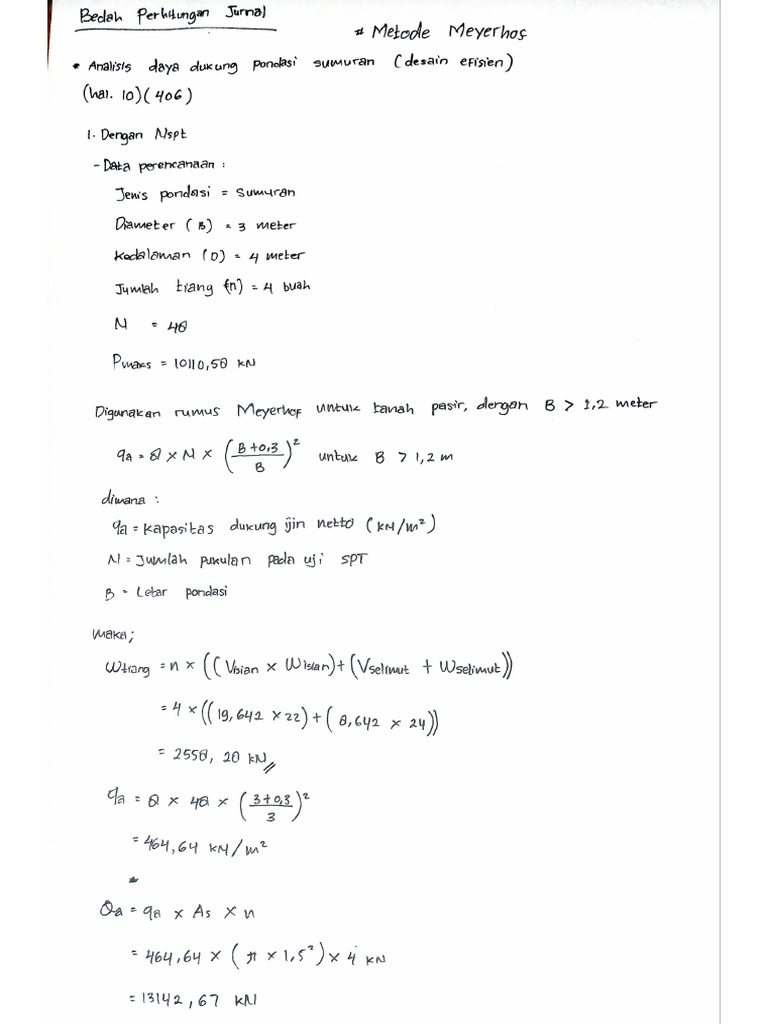 Bedah Perhitungan Jurnal
# Metode Meyerhof
* Analisis daya dukung pondasi sumuran (desain efisien)
(hal. 10) (406)
1. Dengan Nspt
- Data perencanaan :
Jenis pondasi = sumuran
Diameter (B) = 3 meter
Kedalaman (D) = 4 meter
Jumlah tiang (n) = 4 buah
N = 48
Pmaks = 10110,58 kN
Digunakan rumus Meyerhof untuk tanah pasir, dengan B > 1,2 meter
qa = 8 × N × ((B+0,3)/B)² untuk B > 1,2 m
dimana :
qa = kapasitas dukung ijin netto (kN/m²)
N = Jumlah pukulan pada uji SPT
B = Lebar pondasi
maka;
Wtiang = n × ((Visian × Wisian) + (Vselimut + Wselimut))
= 4 × ((19,642 × 22) + (8,642 × 24))
= 2558,20 kN
qa = 8 × 48 × ((3+0,3)/3)²
= 464,64 kN/m²
Qa = qa × As × n
= 464,64 × (π × 1,5²) × 4 kN
= 13142,67 kN